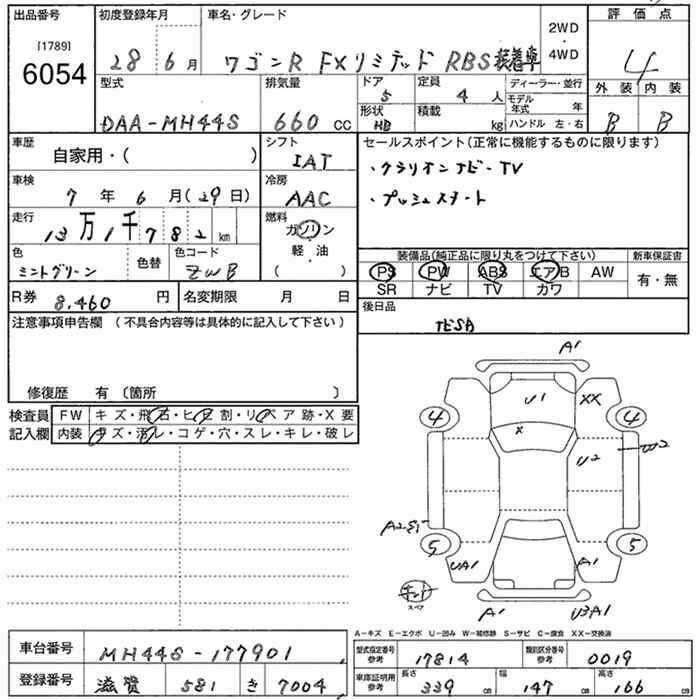 出品番号 初度登録年月 車名・グレード 評価点
[1789]
6054 28 6月 ワゴンR FXリミテッド RBS装着車 2WD・4WD 4
型式 排気量 ドア 定員 ディーラー・並行 外装 内装
5 4人 モデル年式 年
DAA-MH44S 660 CC 形状 積載 B B
HB kg ハンドル 左・右
車歴 シフト セールスポイント(正常に機能するものに限ります)
自家用・( ) IAT ・クラリオンナビ・TV
車検 冷房
7年6月(29日) AAC ・プッシュスタート
走行 燃料
13万1千782km ガソリン・軽油
色 色替 色コード 装備品(純正品に限り丸をつけて下さい) 新車保証書
ミントグリーン ZWB ( ) PS PW ABS エアB AW 有・無
R券 8,460円 名変期限 月 日 SR ナビ TV カワ
注意事項申告欄(不具合内容等は具体的に記入して下さい) 後日品
修復歴 有〔箇所 〕
検査員 FW キズ・飛石・ヒビ割・リペア跡・X要
記入欄 内装 キズ・汚レ・コゲ・穴・スレ・キレ・破レ
A1
U1 XX
4 4
X
U2 W2
5 5
UA1 A1
スペア
A1 U3A1
A-キズ E-エクボ U-凹み W-補修跡 S-サビ C-腐食 XX-交換済
車台番号 MH44S-177901 型式指定番号 参考 17814 類別区分番号 参考 0019
登録番号 滋賀 581 き 7004 車庫証明用 参考 長さ 339cm 幅 147cm 高さ 166cm